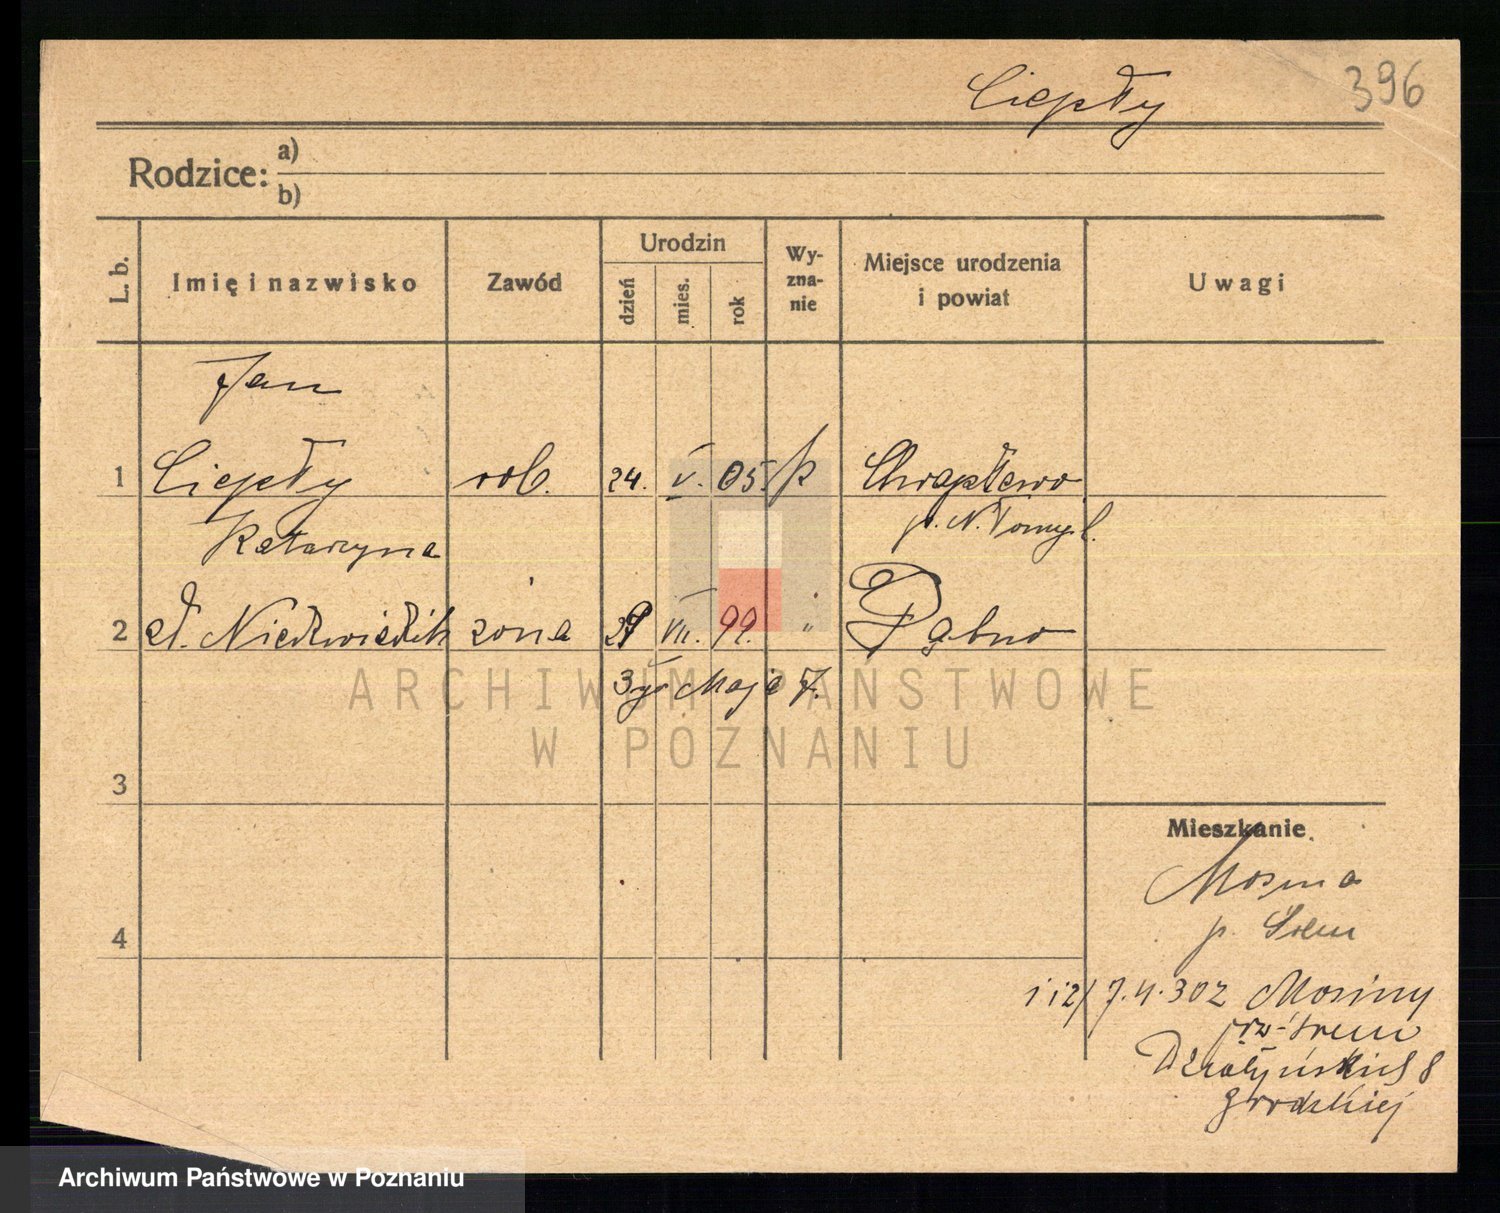 Ciepły
396
Rodzice: a)
b)
L. b.
Imię i nazwisko
Zawód
Urodzin
dzień
mies.
rok
Wy-
zna-
nie
Miejsce urodzenia
i powiat
Uwagi
Jan
1 Ciepły rob. 24. V. 05. k Chraplewo
p. N. Tomyśl.
Katarzyna
2 żona VII. 99. " Dąbno
3go Maja 7.
3
4
Mieszkanie
Mosina
p. Śrem
1 i 2) 7.4.302 Mosiny
Śrem
8
grodzkiej
ARCHIWUM PAŃSTWOWE
W POZNANIU
Archiwum Państwowe w Poznaniu